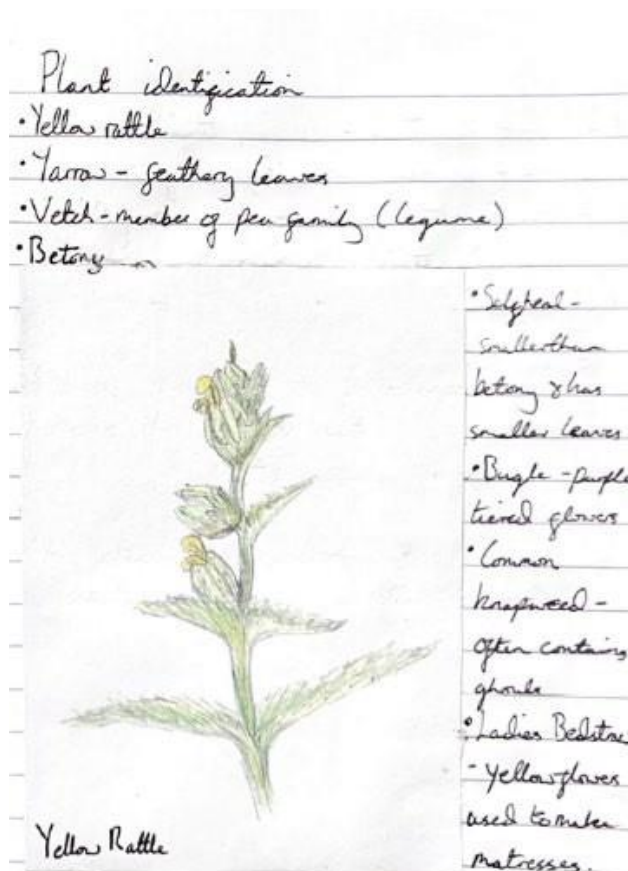 Plant identification
• Yellow rattle
• Yarrow - feathery leaves
• Vetch - member of pea family (legume)
• Betony
• Selfheal -
smaller than
betony & has
smaller leaves
• Bugle - purple
tiered flowers
• Common
knapweed -
often contains
• Ladies Bedstraw
- Yellow flowers
used to make
matresses.
Yellow Rattle